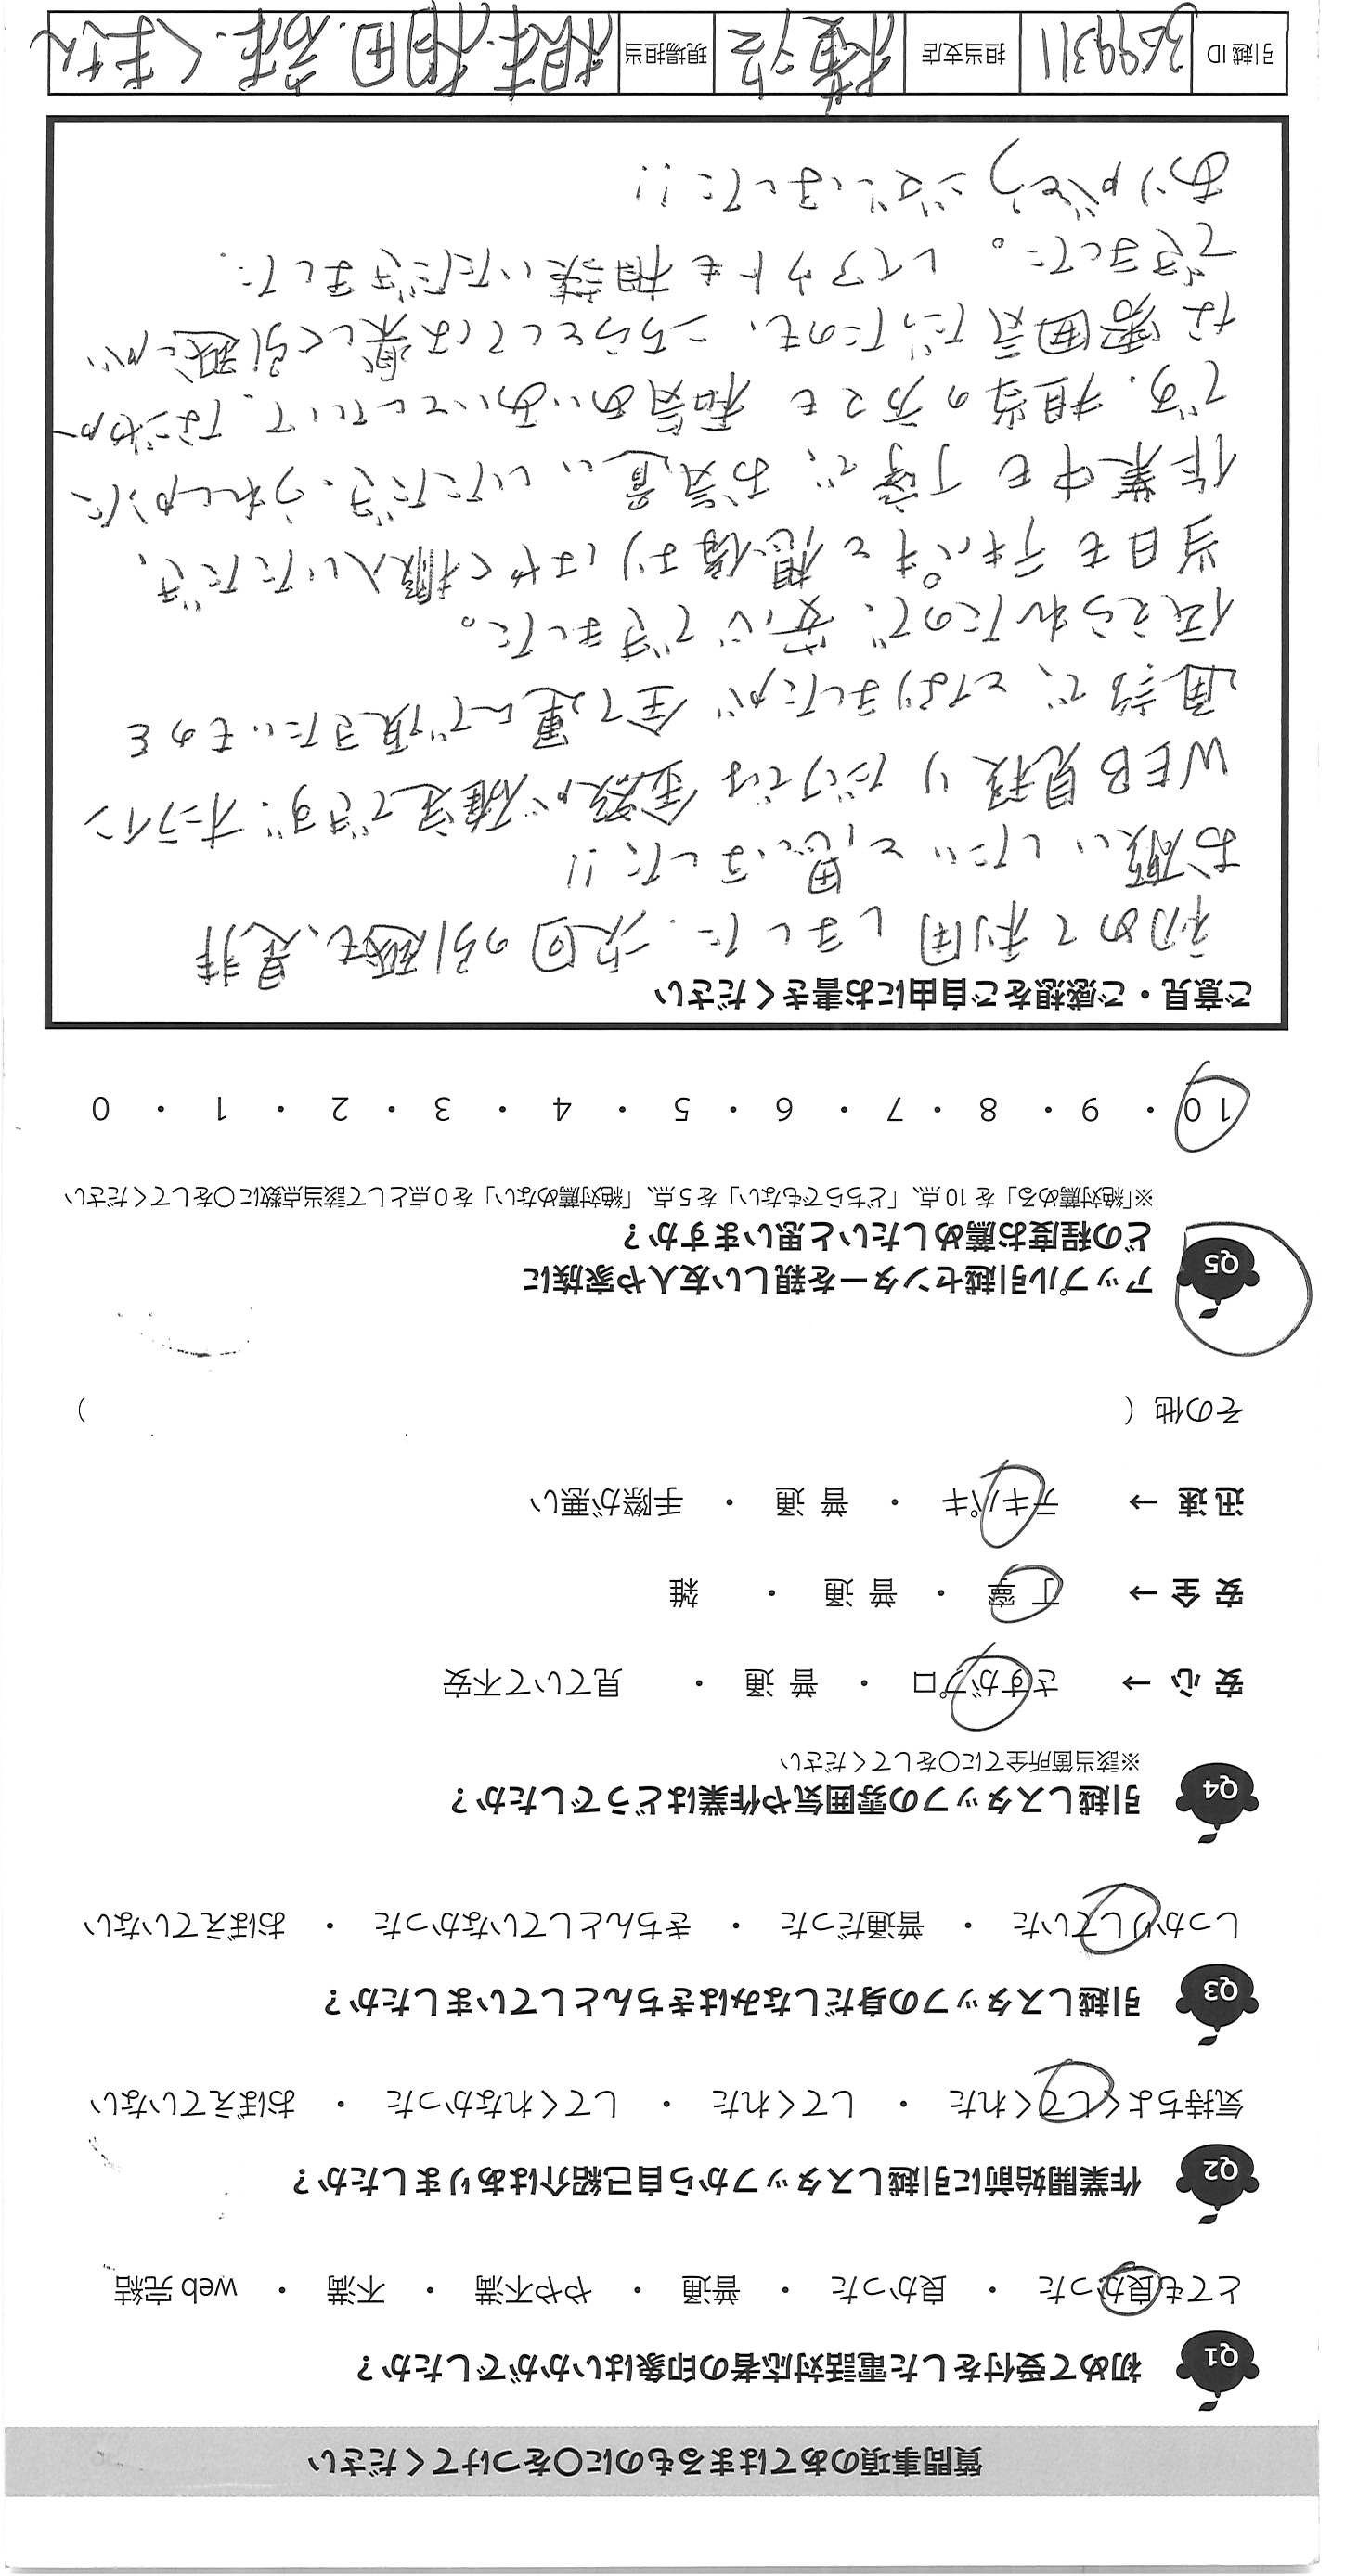 質問事項のあてはまるものに〇をつけてください
Q1 初めて受付をした電話対応者の印象はいかがでしたか？
とても良かった ・ 良かった ・ 普通 ・ やや不満 ・ 不満 ・ web 完結
Q2 作業開始前に引越しスタッフから自己紹介はありましたか？
気持ちよくしてくれた ・ してくれた ・ してくれなかった ・ おぼえていない
Q3 引越しスタッフの身だしなみはきちんとしていましたか？
しっかりしていた ・ 普通だった ・ きちんとしていなかった ・ おぼえていない
Q4 引越しスタッフの雰囲気や作業はどうでしたか？
※該当箇所全てに〇をしてください
安 心 → さすがプロ ・ 普 通 ・ 見ていて不安
安 全 → 丁 寧 ・ 普 通 ・ 雑
迅 速 → テキパキ ・ 普 通 ・ 手際が悪い
その他（ ）
Q5 アップル引越センターを親しい友人や家族に
どの程度お薦めしたいと思いますか？
※「絶対薦める」を 10 点、「どちらでもない」を 5 点、「絶対薦めない」を 0 点として該当点数に〇をしてください
10 ・ 9 ・ 8 ・ 7 ・ 6 ・ 5 ・ 4 ・ 3 ・ 2 ・ 1 ・ 0
ご意見・ご感想をご自由にお書きください
初めて利用しました. 次回の引越も、是非
お願いしたいと思いました!!
WEB見積りだけでは金額が確定できず、オンライン
通話で、となりましたが 全て運んで頂きたいものを
伝えられたので、安心できました。
当日もテキパキと想像よりはやく搬入いただき、
作業中も丁寧で、お気遣いいただき、うれしかった
です. 担当の方とも 和気あいあいとしていて、なごやか
な雰囲気だったのも、こちらとしては楽しく引越が
できました。レイアウトも相談いただきました.
ありがとうございました!!
引越 ID 3699311 担当支店 横浜 現場担当